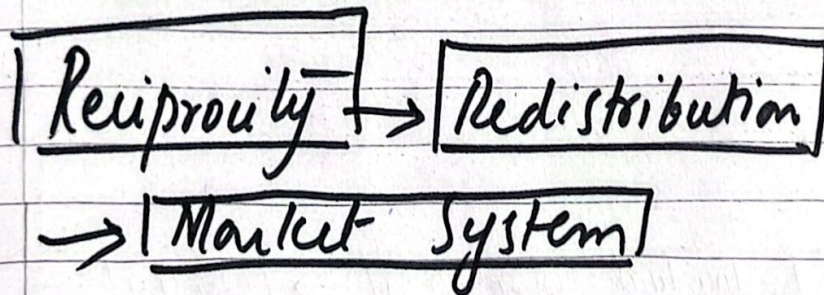 Reciprocity → Redistribution
→ Market System